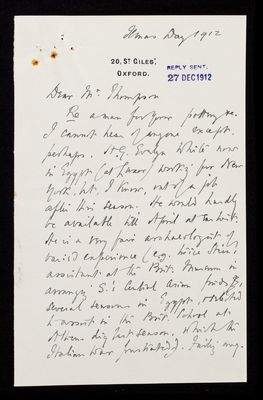 Xmas Day 1912
20, St Giles',
Oxford.
REPLY SENT.
27 DEC 1912
Dear Mr. Thompson
Re a man for your pottery etc.
I cannot hear of anyone except
perhaps H. G. Evelyn White now
in Egypt (at Luxor) working for New
York, but, I know, out of a job
after this season. He would hardly
be available till April at
He is a very fair archaeologist of
varied experience (e.g. twice Stein's
assistant at the Brit. Museum in
arranging S.'s Central Asian finds,
several seasons in Egypt, selected
to assist in the Brit. School at
Athens dig last season, which the
Italian War frustrated).